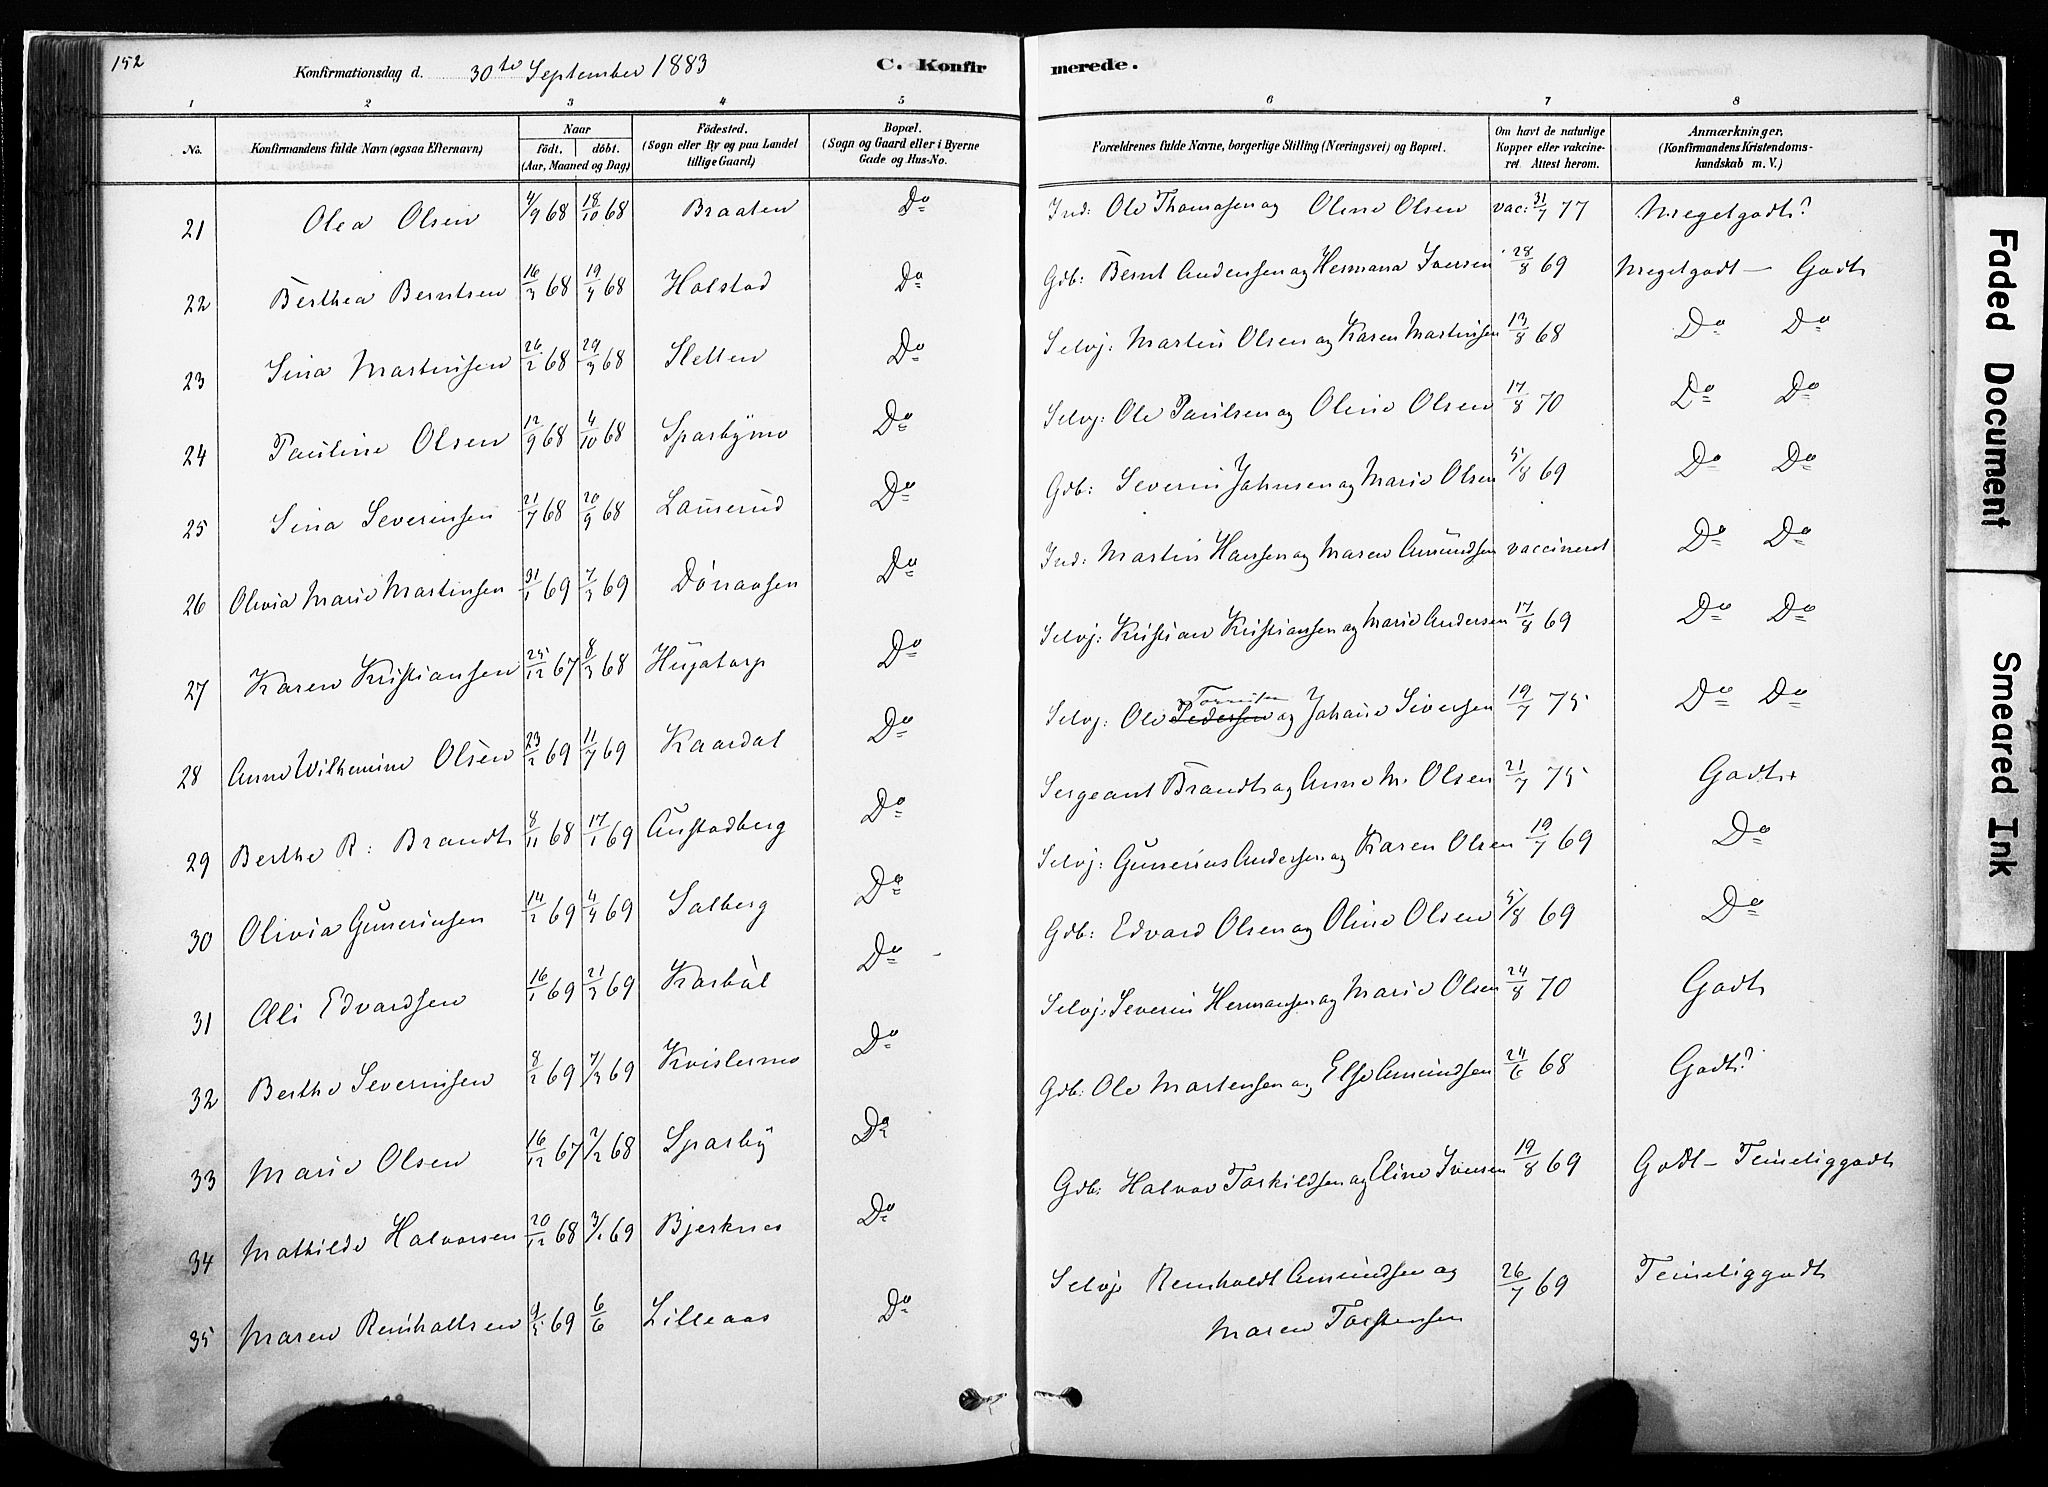 152
Konfirmationsdag d. 30te September 1883
C. Konfirmerede.
1 2 3 4 5 6 7 8
No. Konfirmandens fulde Navn (ogsaa Efternavn) Naar födt. döbt. (Aar, Maaned og Dag) Födested. (Sogn eller By og paa Landet tillige Gaard) Bopæl. (Sogn og Gaard eller i Byerne Gade og Hus-No. Forældrenes fulde Navne, borgerlige Stilling (Næringsvei) og Bopæl. Om havt de naturlige Kopper eller vakcineret. Attest herom. Anmærkninger. (Konfirmandens Kristendomskundskab m. V.)
21 Olea Olsen 4/9 68 18/10 68 Braaten Do Ind: Ole Thomasen og Oline Olsen vac: 31/7 77 Megetgodt?
22 Berthea Berntsen 16/3 68 19/4 68 Holstad Do Gdb: Bernt Andersen og Hermana Iversen 28/8 69 Megetgodt — Godt
23 Sina Martinsen 26/2 68 29/3 68 Sletten Do Selvj: Martin Olsen og Karen Martinsen 13/8 68 Do Do
24 Pauline Olsen 12/9 68 4/10 68 Sparbymo Do Selvj: Ole Paulsen og Oline Olsen 17/8 70 Do Do
25 Sina Severinsen 21/7 68 20/9 68 Lauserud Do Gdb: Severin Johnsen og Marie Olsen 5/8 69 Do Do
26 Olivia Marie Martinsen 31/1 69 7/3 69 Do Ind: Martin Hansen og Maren Amundsen vaccineret Do Do
27 Karen Kristiansen 25/12 67 8/3 68 Do Selvj: Kristian Kristiansen og Marie Andersen 17/8 69 Do Do
28 Anne Wilhemine Olsen 23/2 69 11/7 69 Kaardal Do Selvj: Ole Pedersen og Johane Siversen 19/7 75 Do Do
29 Berthe R: Brandt 8/11 68 17/1 69 Austadberg Do Sergeant Brandt og Anne M. Olsen 21/7 75 Godt+
30 Olivia Gunerinsen 14/2 69 4/4 69 Salberg Do Selvj: Gunerius Andersen og Karen Olsen 19/7 69 Do
31 Oli Edvardsen 16/1 69 21/3 69 Karbøl Do Gdb: Edvard Olsen og Oline Olsen 5/8 69 Do
32 Berthe Severinsen 8/2 69 7/3 69 Kvislermo Do Selvj: Severin Hermansen og Marie Olsen 24/8 70 Godt
33 Marie Olsen 16/12 67 2/2 68 Sparby Do Gdb: Ole Martensen og Else Amundsen 24/6 68 Godt?
34 Mathilde Halvorsen 20/12 68 3/1 69 Bjerknes Do Gdb: Halvor Torkildsen og Eline Iversen 19/8 69 Godt – Temeliggodt
35 Maren Reinholtsen 9/5 69 6/6 Lilleaas Do Selvj: Reinholdt Amundsen og 26/7 69 Temeliggodt
Maren Torstensen
Faded Document
Smeared Ink